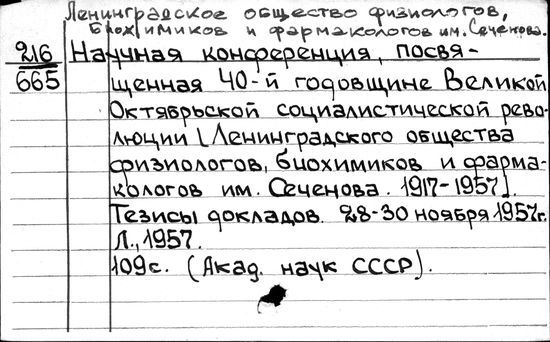 Ленинградское общество физиологов,
биохимиков и фармакологов им. Сеченова.
216
665
Научная конференция, посвя-
щенная 40-й годовщине Великой
Октябрьской социалистической рево-
люции [Ленинградского общества
физиологов, биохимиков и фарма-
кологов им. Сеченова. 1917-1957].
Тезисы докладов. 28-30 ноября 1957г.
Л., 1957.
109с. (Акад. наук СССР).